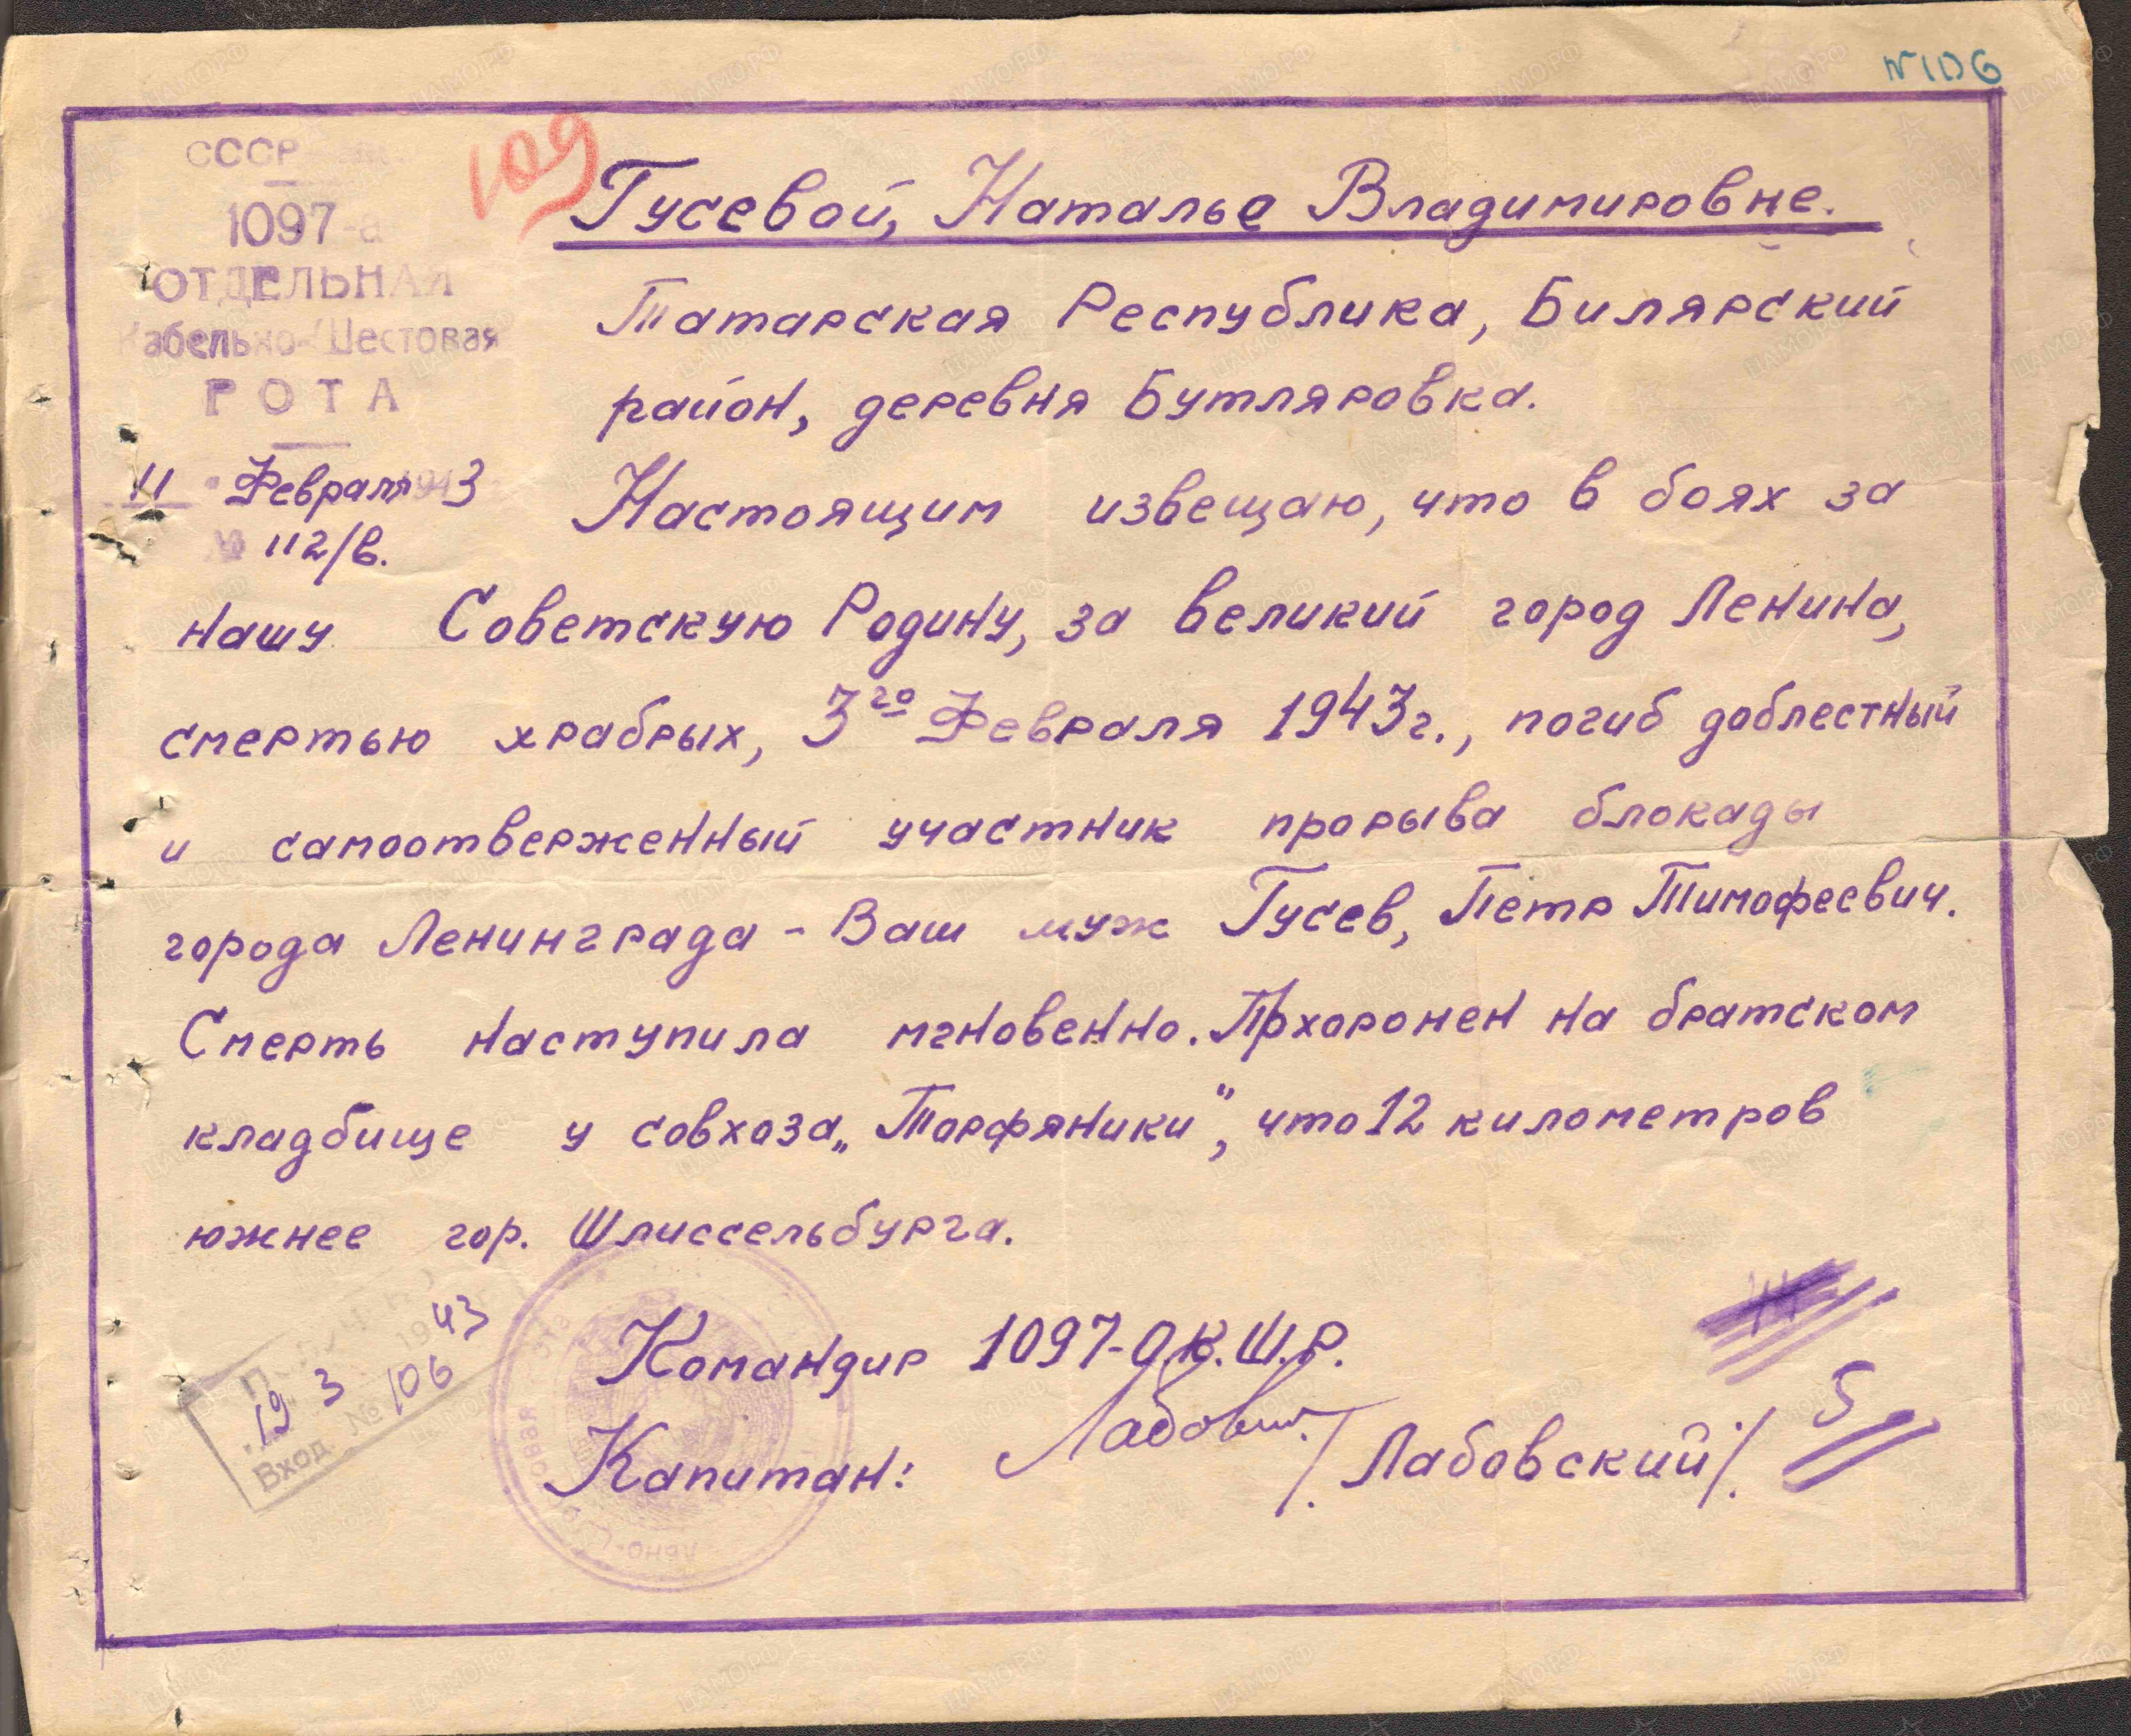 № 106
СССР
1097-а
ОТДЕЛЬНАЯ
Кабельно-Шестовая
РОТА
11 Февраля 1943
№ 112/в.
109
Гусевой, Наталье Владимировне.
Татарская Республика, Билярский
район, деревня Бутляровка.
Настоящим извещаю, что в боях за
нашу Советскую Родину, за великий город Ленина,
смертью храбрых, 3го Февраля 1943г., погиб доблестный
и самоотверженный участник прорыва блокады
города Ленинграда - Ваш муж Гусев, Петр Тимофеевич.
Смерть наступила мгновенно. Похоронен на братском
кладбище у совхоза „Торфяники", что 12 километров
южнее гор. Шлиссельбурга.
19 3 1943
Вход № 106
Командир 1097-О.К.Ш.Р.
Капитан: /Лабовский/.
5